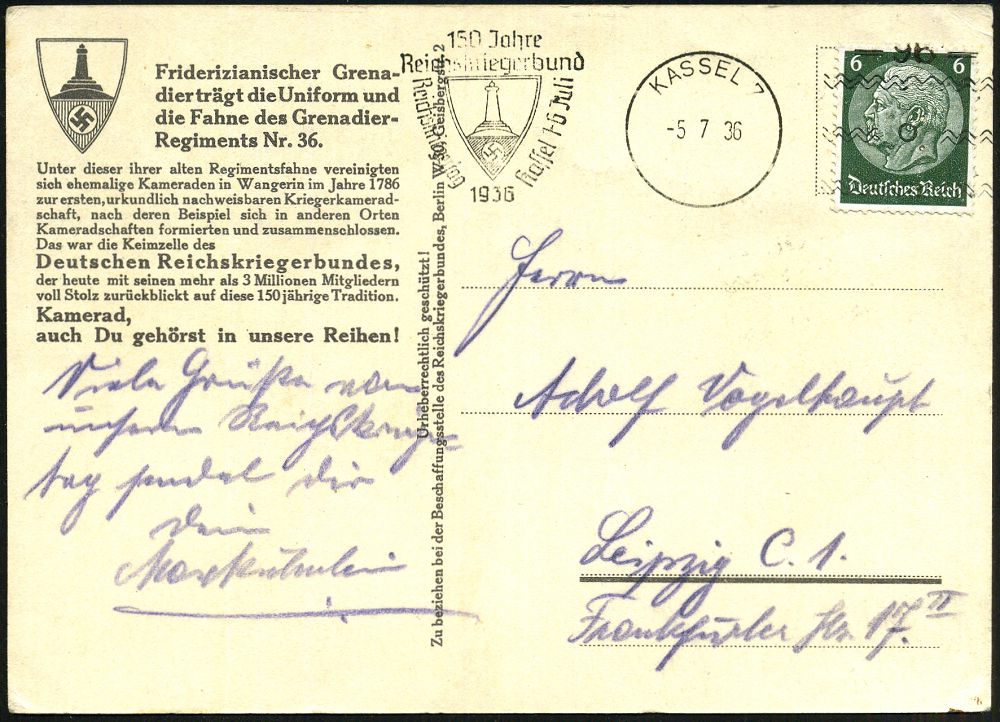 Friderizianischer Grena-
dier trägt die Uniform und
die Fahne des Grenadier-
Regiments Nr. 36.
Unter dieser ihrer alten Regimentsfahne vereinigten
sich ehemalige Kameraden in Wangerin im Jahre 1786
zur ersten, urkundlich nachweisbaren Kriegerkamerad-
schaft, nach deren Beispiel sich in anderen Orten
Kameradschaften formierten und zusammenschlossen.
Das war die Keimzelle des
Deutschen Reichskriegerbundes,
der heute mit seinen mehr als 3 Millionen Mitgliedern
voll Stolz zurückblickt auf diese 150jährige Tradition.
Kamerad,
auch Du gehörst in unsere Reihen!
Viele Grüße von
unserem Reichskrieger-
tag sendet dir
dein
Urheberrechtlich geschützt!
Zu beziehen bei der Beschaffungsstelle des Reichskriegerbundes, Berlin W 30, Geisbergstr. 2
150 Jahre
Reichskriegerbund
Reichskriegertag
Kassel 4-6 Juli
1936
KASSEL 7
-5 7 36
96
6 6
Deutsches Reich
Herrn
Adolf Vogelhaupt
Leipzig C. 1.
Frankfurter Str. 17. II